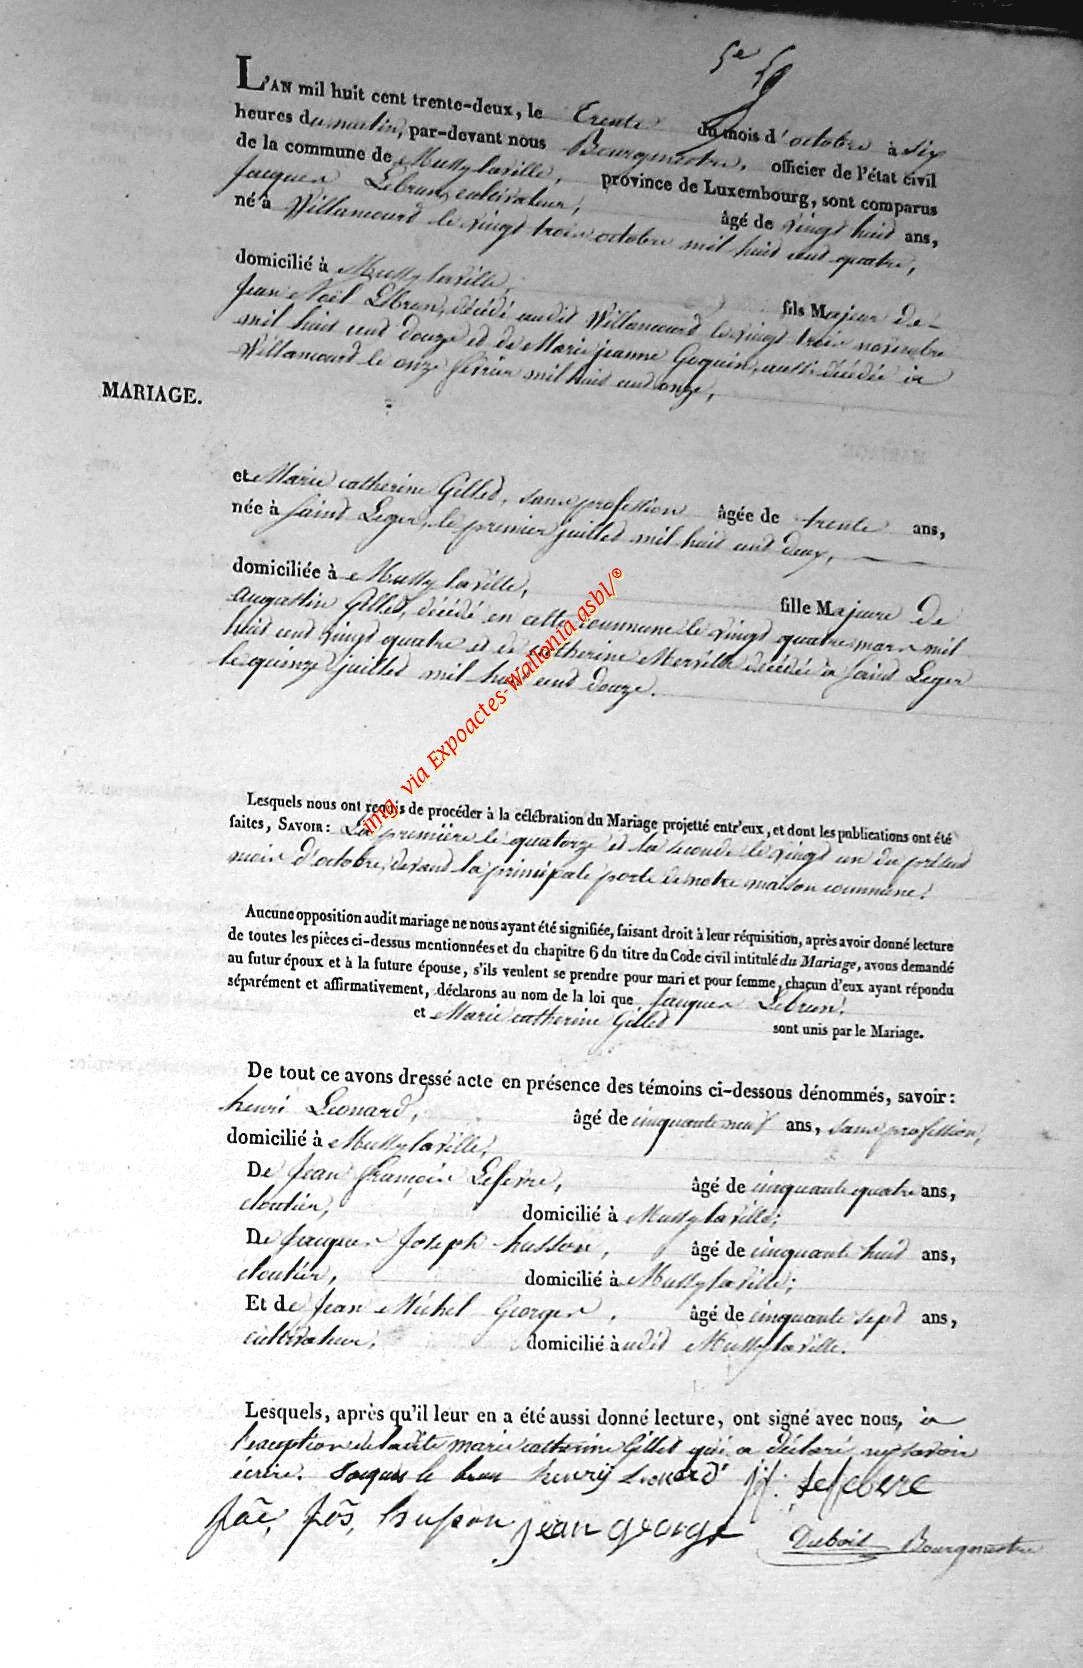 5e
L'AN mil huit cent trente-deux, le trente du mois d'octobre à six
heures du matin, par-devant nous Bourgmestre, officier de l'état civil
de la commune de Mussy laville, province de Luxembourg, sont comparus
Jacques Lebrun, cultivateur, âgé de vingt huit ans,
né à Willancourt le vingt trois octobre mil huit cent quatre,
domicilié à Mussy laville, fils Majeur de
Jean Noël Lebrun, décédé audit Willancourt le vingt trois novembre
mil huit cent douze et de Marie jeanne Goquin, aussi décédée à
Willancourt le onze février mil huit cent onze,
MARIAGE.
et Marie catherine Gillet, sans profession âgée de trente ans,
née à Saint Leger, le premier juillet mil huit cent deux,
domiciliée à Mussy laville, fille Majeure de
Augustin Gillet, décédé en cette commune le vingt quatre mars mil
huit cent vingt quatre et de catherine décédée à Saint Leger
le quinze juillet mil huit cent douze.
img. via Expoactes-Wallonia asbl/®
Lesquels nous ont requis de procéder à la célébration du Mariage projetté entr'eux, et dont les publications ont été
faites, SAVOIR : La première le quatorze et la seconde le vingt un du présent
mois d'octobre, devant la principale porte de notre maison commune.
Aucune opposition audit mariage ne nous ayant été signifiée, faisant droit à leur réquisition, après avoir donné lecture
de toutes les pièces ci-dessus mentionnées et du chapitre 6 du titre du Code civil intitulé du Mariage, avons demandé
au futur époux et à la future épouse, s'ils veulent se prendre pour mari et pour femme, chacun d'eux ayant répondu
séparément et affirmativement, déclarons au nom de la loi que Jacques Lebrun
et Marie catherine Gillet sont unis par le Mariage.
De tout ce avons dressé acte en présence des témoins ci-dessous dénommés, savoir :
henri Leonard, âgé de cinquante neuf ans, sans profession,
domicilié à Mussy laville,
De Jean françois Lefevre, âgé de cinquante quatre ans,
cloutier, domicilié à Mussy laville;
De Jacques Joseph husson, âgé de cinquante huit ans,
cloutier, domicilié à Mussy laville;
Et de Jean Michel Georges, âgé de cinquante sept ans,
cultivateur, domicilié àudit Mussy laville.
Lesquels, après qu'il leur en a été aussi donné lecture, ont signé avec nous, à
l'exception de ladite marie catherine Gillet qui a déclaré ne savoir
écrire. Jacques le brun henry Leonard j f. Lefebvre
Jac, Jos, husson jean george Dubois Bourgmestre